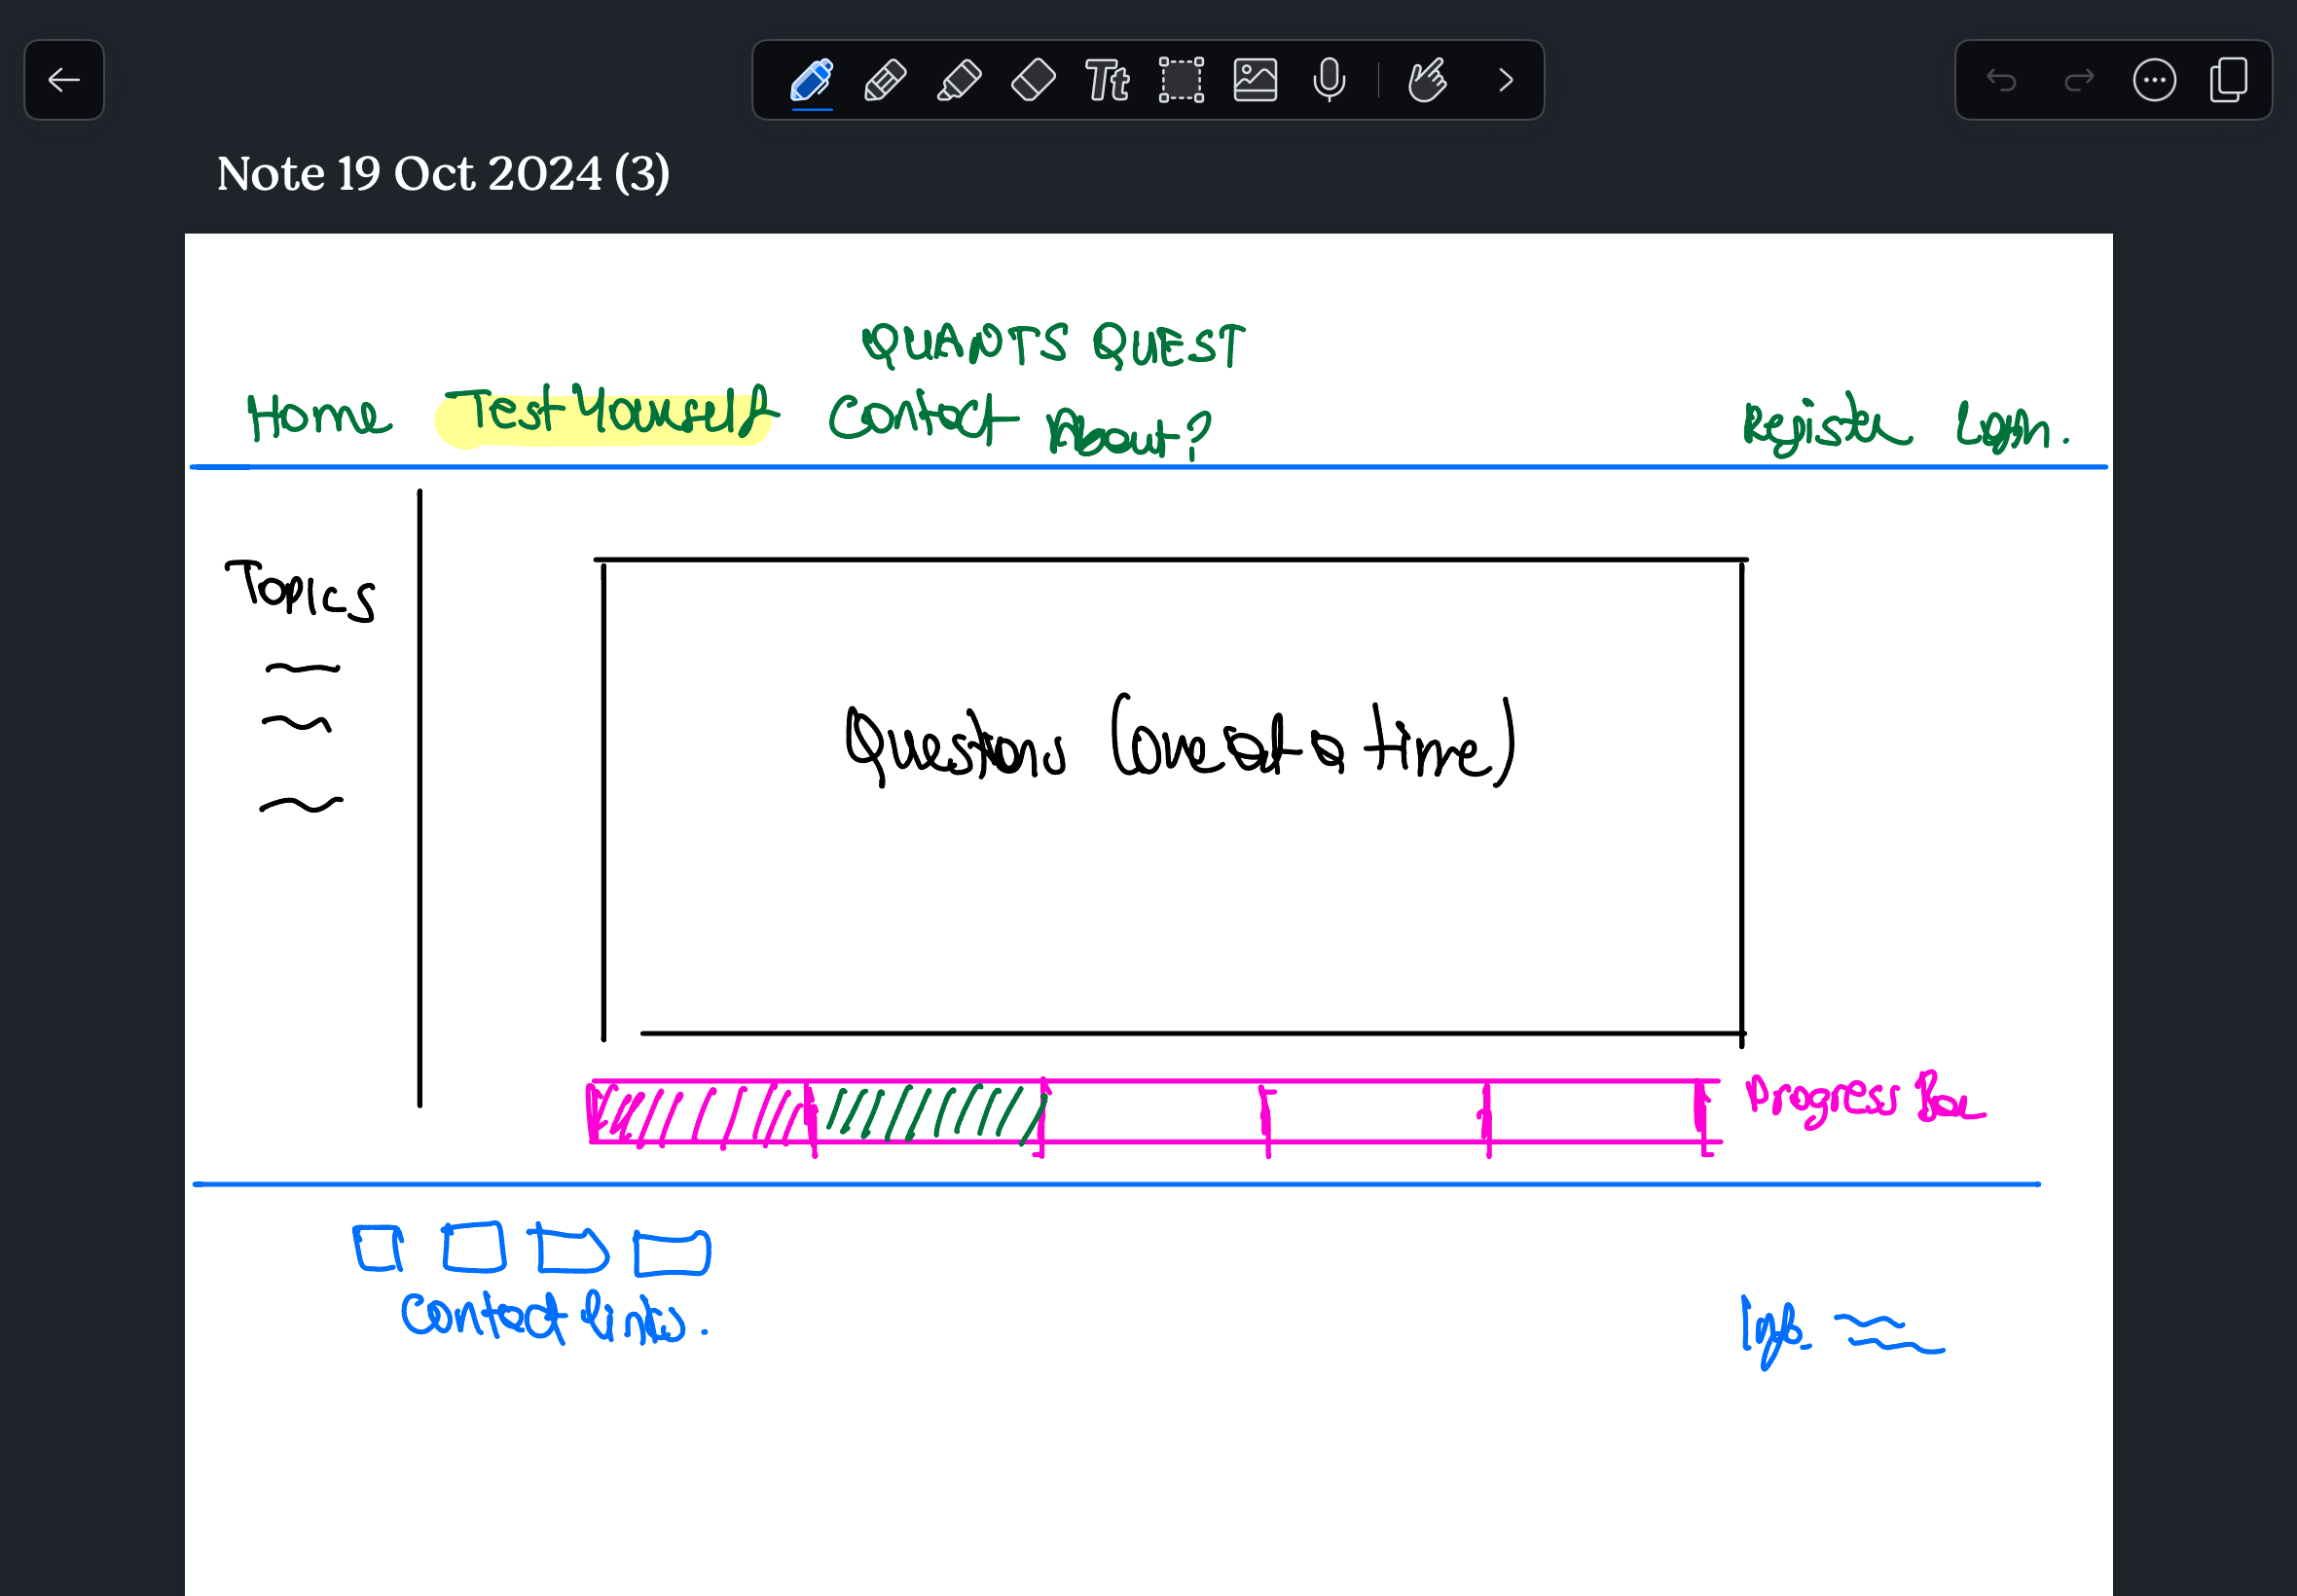 Tt
Note 19 Oct 2024 (3)
QUANTS QUEST
Home Test Yourself Contact About? Register Login.
Topics
Questions (one at a time)
Progress Bar
Contact Links.
Info